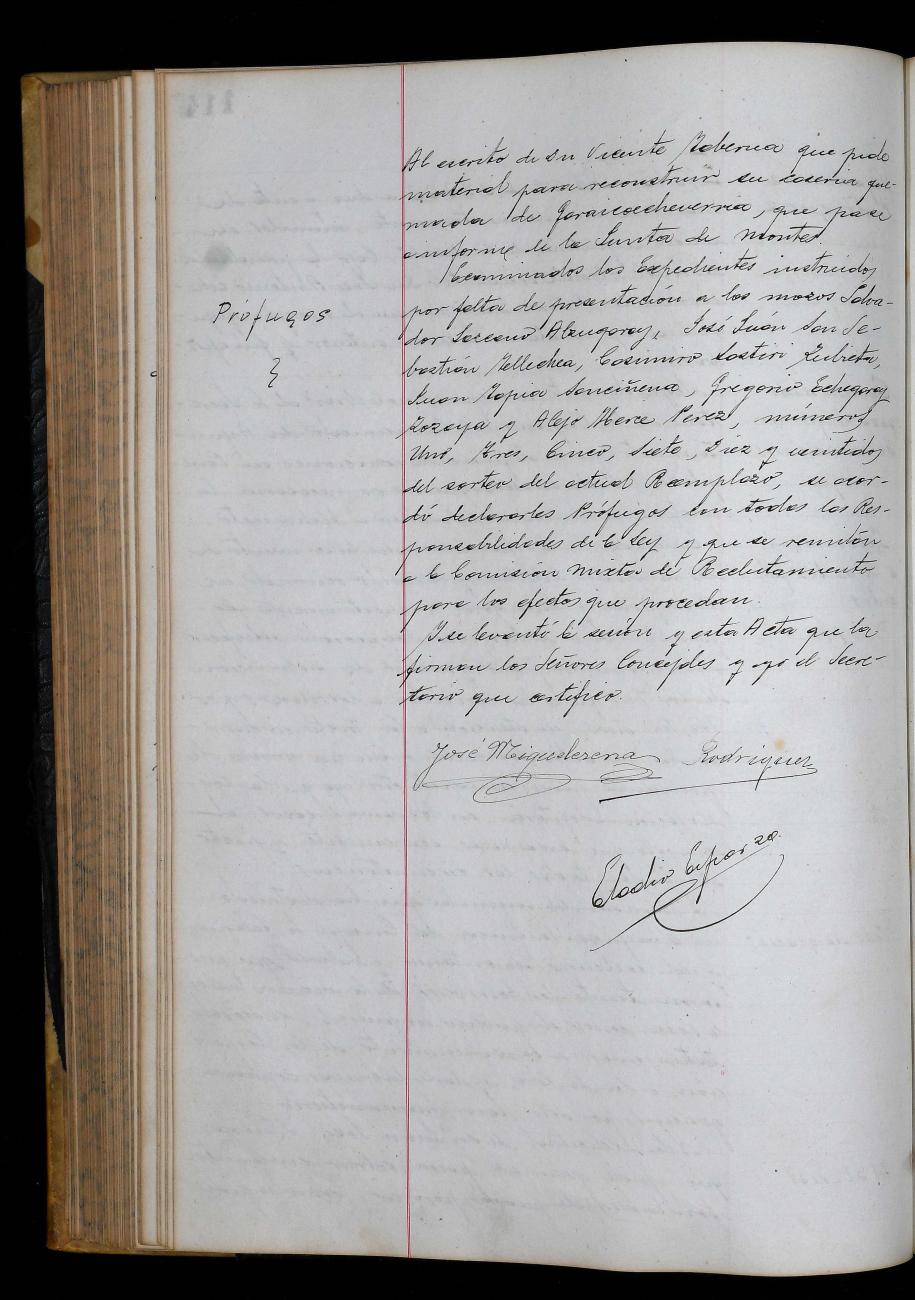 Al escrito de Dn Vicente Taberna que pide
material para reconstruir su caseria que-
mada de Garaicoecheverria, que pase
a informe de la Junta de Montes.
Examinados los Expedientes instruidos
por falta de presentación a los mozos Salva-
dor Lazcano Alzugaray, José Juán San Se-
bastián Tellechea, Casimiro Sastiri Zubieta,
Juan Tapia Sanciñena, Gregorio Echegaray
Zozaya y Alejo Perez, números
Uno, Tres, Cinco, Siete, Diez y veintidos
del sorteo del actual Reemplazo, se acor-
dó declararles Prófugos con todas las Res-
ponsabilidades de la Ley y que se remitan
a la Comisión mixta de Reclutamiento
para los efectos que procedan.
Y se levantó la sesión y esta Acta que la
firman los Señores Concejales y yo el Secre-
tario que certifico.
Prófugos
José Miguelerena Rodriguez
Eladio Esparza